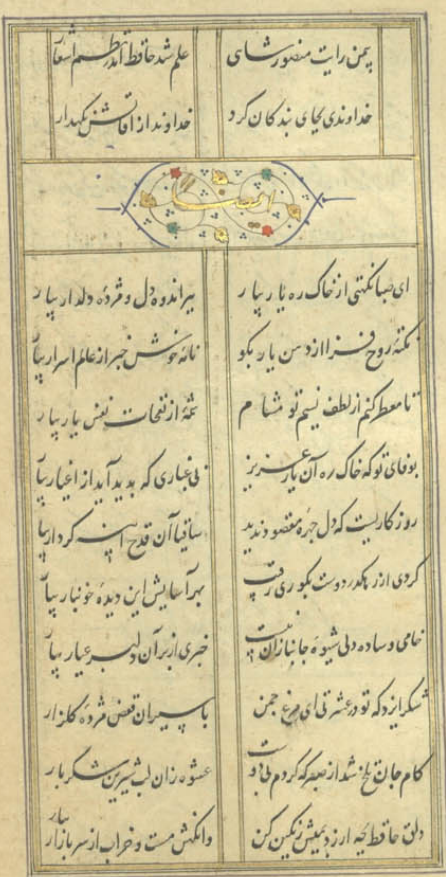 بیمن رایت منصور شاهی علم شد حافظ اندر نظم اشعار
خداوندی بجای بندکان کرد خداوندا ز آفاتش نکهدار
ایضا
ای صبا نکهتی از خاک ره یار بیار ببر اندوه دل و مژده دلدار بیار
نکتهٔ روح فزا از دهن یار بکو نامهٔ خوش خبر از عالم اسرار بیار
تا معطر کنم از لطف نسیم تو مشام شمهٔ از نفحات نفس یار بیار
بوفای تو که خاک ره آن یار عزیز بی غباری که بدید آید از اغیار بیار
روزکاریست که دل چهره مقصود ندید ساقیا آن قدح آینه کردار بیار
کردی از رهکذر دوست بکوری رقیب بهر آسایش این دیده خونبار بیار
خامی و ساده دلی شیوه جانبازان نیست خبری از بر آن دلبر عیار بیار
شکر ایزد که تو در عشرتی ای مرغ چمن باسیران قفس مژده کلزار بیار
کام جان تلخ شد از صبر که کردم بی دوست عشوه زان لب شیرین شکر بار بیار
دلق حافظ بچه ارزد بمیش رنکین کن وانکهش مست و خراب از سر بازار بیار